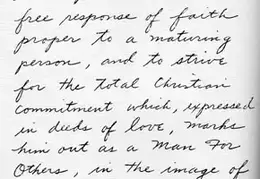 free response of faith
proper to a maturing
person, and to strive
for the Total Christian
commitment which, expressed
in deeds of love, marks
him out as a Man For
Others, in the image of